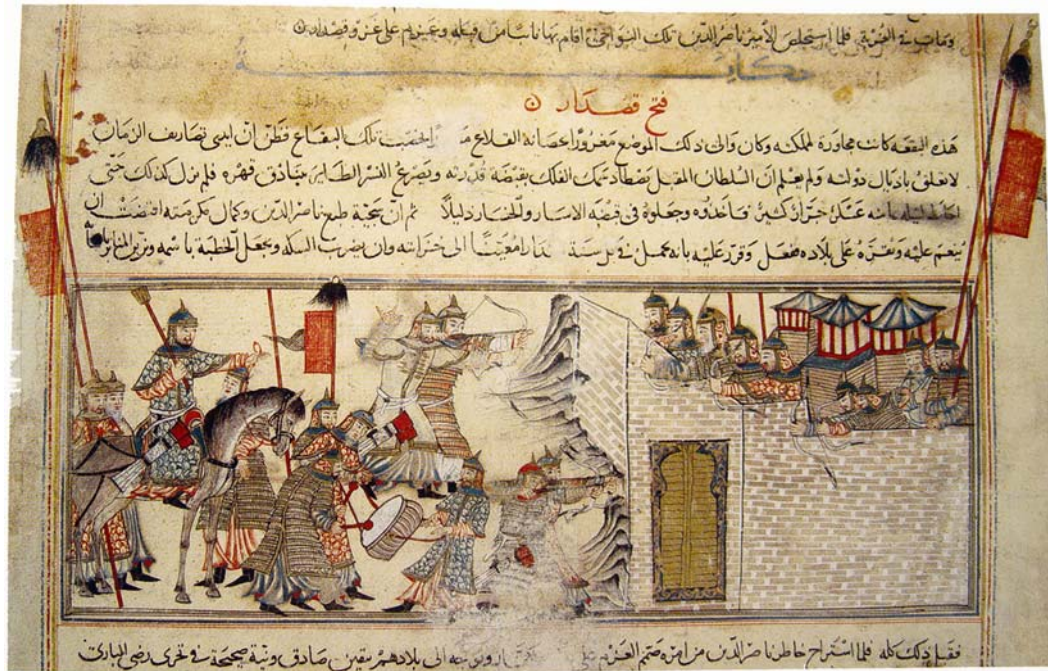 فلما استخلص الأمير ناصر الدين تلك النواحى اقام بها نائبا من قبله وعزم على غزو قصدار
حكاية
فتح قصدار
هذه البقعة كانت مجاورة لمملكته وكان والى ذلك الموضع مغرورا بحصانة القلاع تلك البقاع فظن ان ايدى تصاريف الزمان
لا تعلق باذيال دولته ولم يعلم ان السلطان المقبل يصطاد سمك الفلك بقبضة قدرته ويصرع النسر الطاير ببنادق قهره فلم يزل كذلك حتى
عسكر جرار كثير فاخذوه وجعلوه فى قبضة الاسار والخسار ثم ان سجية طبع ناصر الدين وكمال مكرمته اقتضت ان
ينعم عليه ويقره على بلاده ففعل وقرر عليه بانه يحمل فى كل سنة معينا الى خزانته وان يضرب السكة ويجعل الخطبة باسمه وتزين المنابر
فقبل ذلك كله فلما استراح خاطر ناصر الدين من امره صمم العزيمة على وتوجه الى بلادهم بيقين صادق ونية صحيحة وتحرى رضى البارئ